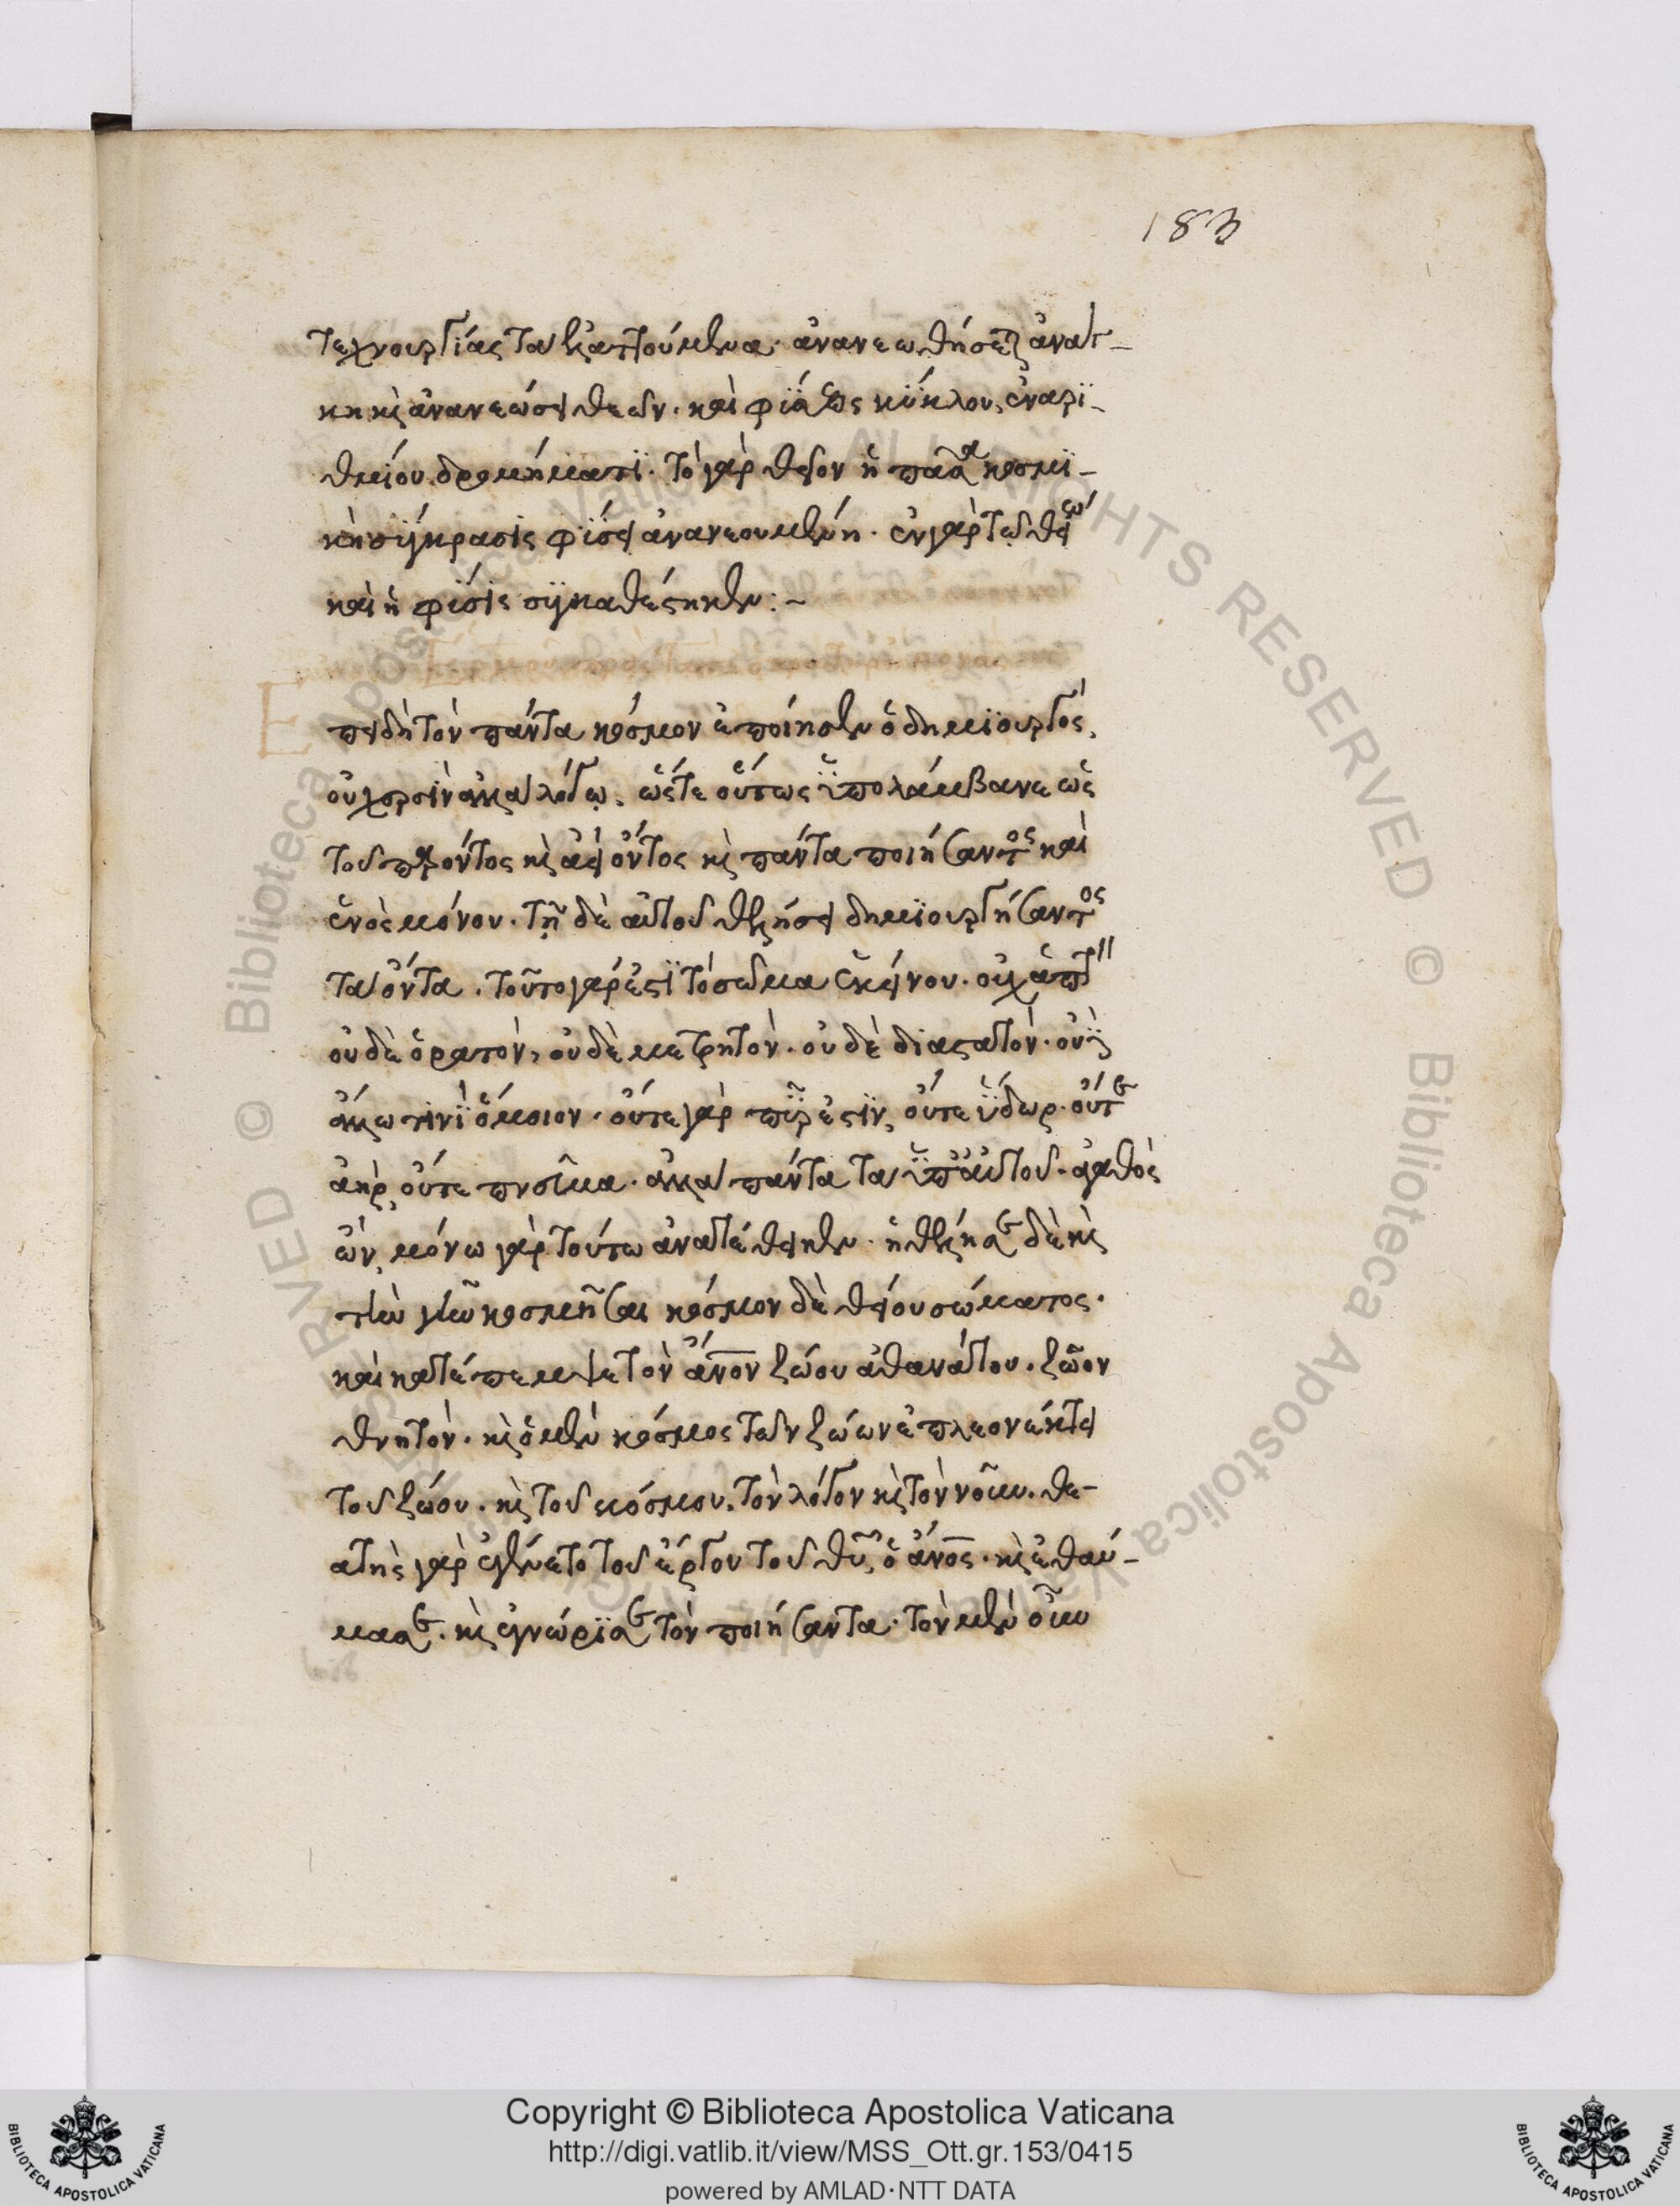 183
τεχνουργίας τὰ ἐλαττούμενα. ἀνανεωθήσεται ἀνάγ-
κη καὶ ἀνανεώσει θεῶν. καὶ φύσεως κύκλου ἐναρι-
θμίου δρομήματι. τὸ γὰρ θεῖον ἡ πᾶσα κοσμι-
κὴ σύγκρασις φύσει ἀνανεουμένη. ἐν γὰρ τῷ θείῳ
καὶ ἡ φύσις συγκαθέστηκεν:~
Ε
πειδὴ τὸν πάντα κόσμον ἐποίησεν ὁ δημιουργός,
οὐ χερσὶν ἀλλὰ λόγῳ. ὥστε οὕτως ὑπολάμβανε ὡς
τοῦ παρόντος καὶ ἀεὶ ὄντος καὶ πάντα ποιήσαντος καὶ
ἑνὸς μόνου. τῇ δὲ αὐτοῦ θελήσει δημιουργήσαντος
τὰ ὄντα. τοῦτο γάρ ἐστι τὸ σῶμα ἐκείνου. οὐχ ἁπτὸν
οὐδὲ ὁρατόν, οὐδὲ μετρητόν. οὐδὲ διαστατόν. οὐδὲ
ἄλλω τινὶ ὅμοιον. οὔτε γὰρ πῦρ ἐστιν, οὔτε ὕδωρ. οὔτε
ἀὴρ, οὔτε πνεῦμα. ἀλλὰ πάντα τὰ ὑπ' αὐτοῦ. ἀγαθὸς
ὢν, μόνω γὰρ τούτω ἀνατέθεικεν. ἠθέλησε δὲ καὶ
τὴν γῆν κοσμῆσαι κόσμον δὲ θείου σώματος.
καὶ κατέπεμψε τὸν ἄνον ζώου ἀθανάτου. ζῶον
θνητόν. καὶ ὁ μὲν κόσμος τῶν ζώων ἐπλεονέκτει
τοῦ ζώου. καὶ τοῦ κόσμου. τὸν λόγον καὶ τὸν νοῦν. θε-
ατὴς γὰρ ἐγένετο τοῦ ἔργου τοῦ θυ, ὁ ἄνος. καὶ ἐθαύ-
μασε. καὶ ἐγνώρισε τὸν ποιήσαντα. τὸν μὲν οὖν
Copyright © Biblioteca Apostolica Vaticana
http://digi.vatlib.it/view/MSS_Ott.gr.153/0415
powered by AMLAD·NTT DATA